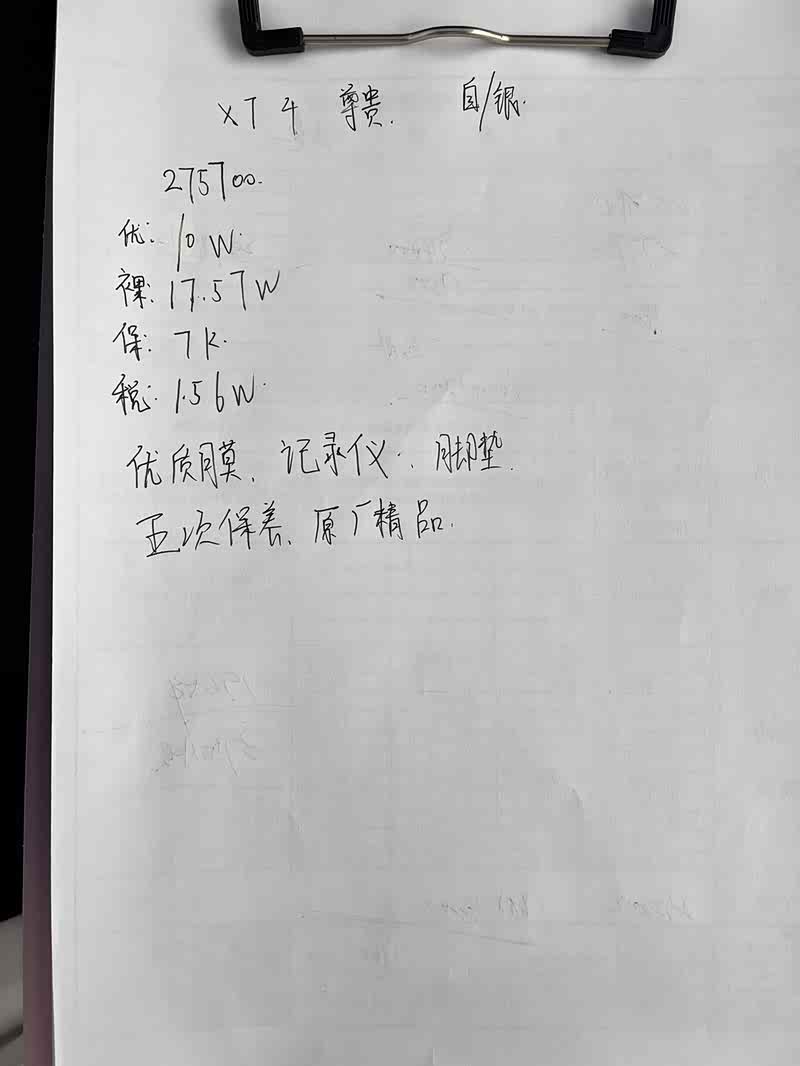 XT4 尊贵. 白/银.
275700.
优: 10W.
裸: 17.57W
保: 7K.
税: 1.56W.
优质膜、记录仪、脚垫.
五次保养、原厂精品.